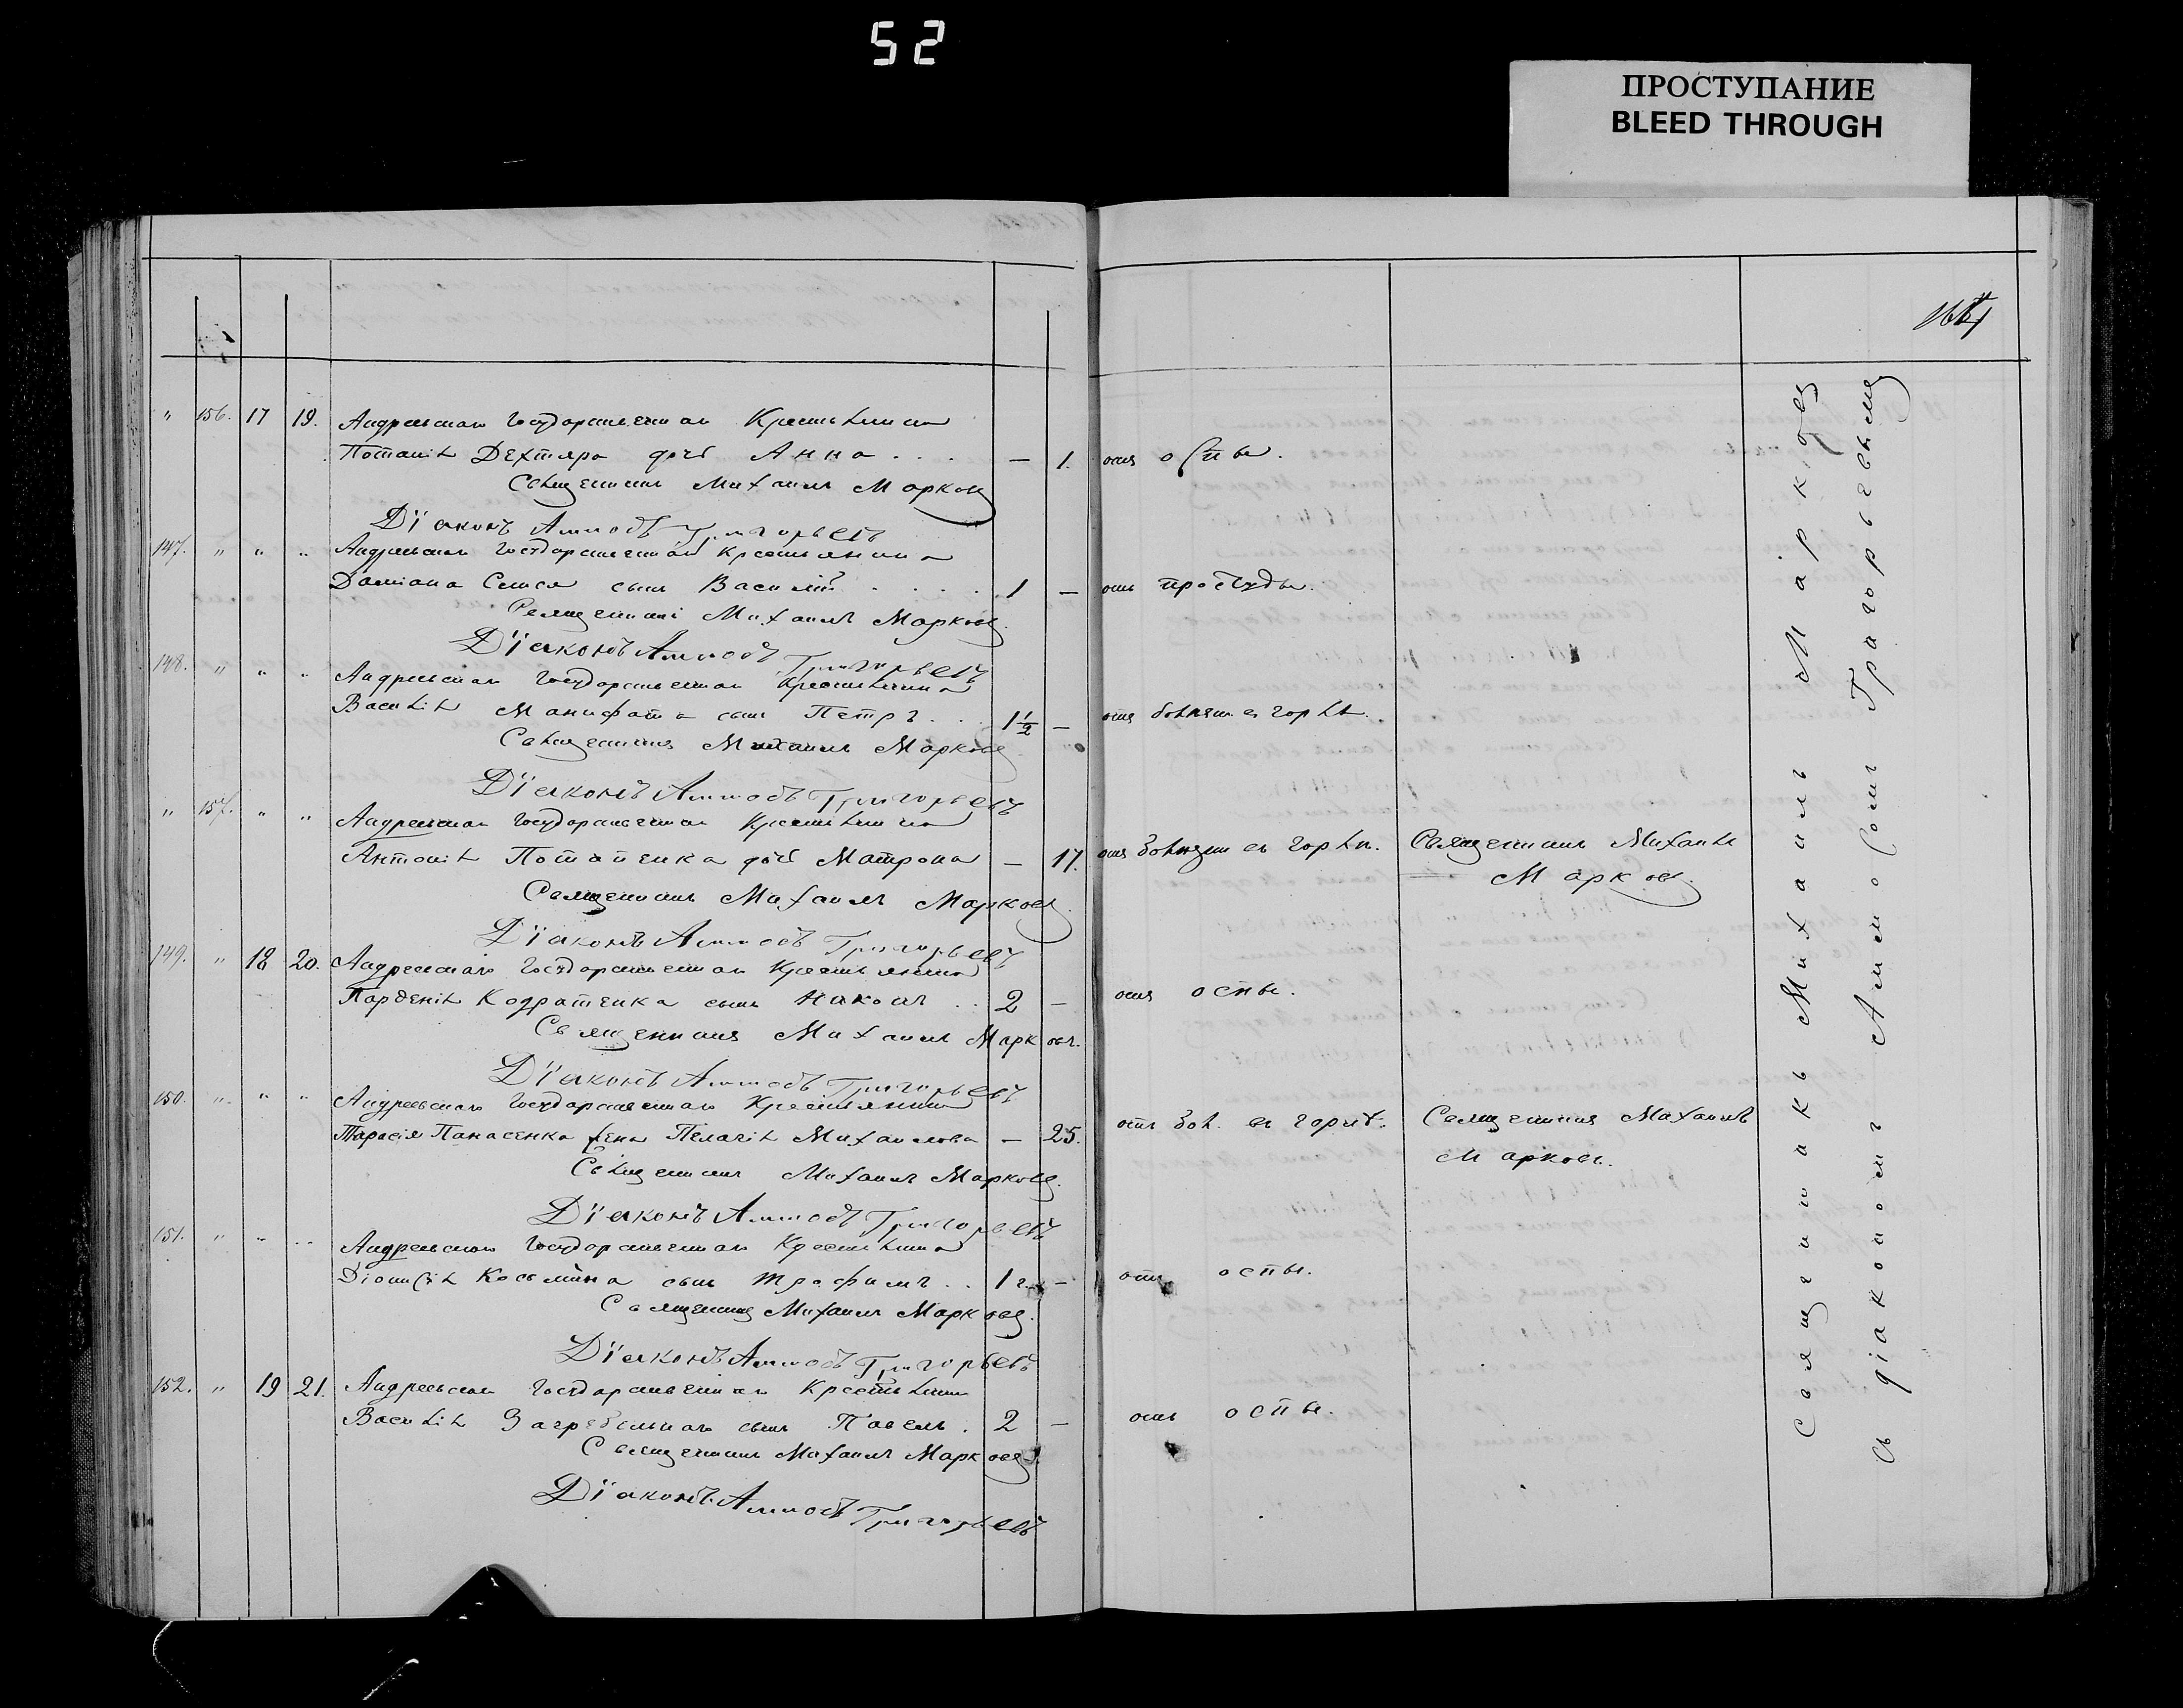 52
ПРОСТУПАНИЕ
BLEED THROUGH
" 156. 17 19. Андреевскаго Государственнаго Крестьянина
Потапія Дехтяра дочь Анна . . . — 1. отъ оспы.
Священникъ Михаилъ Марковъ
Дїаконъ Аммосъ Григорьевъ
147. " " " Андреевскаго Государственнаго Крестьянина
Даміана сынъ Василій . . . . 1 — отъ простуды.
Священникъ Михаилъ Марковъ
Дїаконъ Аммосъ Григорьевъ
148. " " " Андреевскаго Государственнаго Крестьянина
Василія Манифата сынъ Петръ . . 1½ — отъ болезни въ горлѣ.
Священникъ Михаилъ Марковъ
Дїаконъ Аммосъ Григорьевъ
" 157. " " Андреевскаго Государственнаго Крестьянина
Антонія Потапенка дочь Матрона — 17. отъ болезни въ горлѣ. Священникъ Михаилъ
Марковъ
Священникъ Михаилъ Марковъ
Дїаконъ Аммосъ Григорьевъ
149. " 18 20. Андреевскаго Государственнаго Крестьянина
Парѳенія Кодратенка сынъ Никонъ . . 2 — отъ оспы.
Священникъ Михаилъ Марковъ.
Дїаконъ Аммосъ Григорьевъ
150. " " " Андреевскаго Государственнаго Крестьянина
Тарасія Панасенка жена Пелагія Михайлова — 25. отъ бол. въ горлѣ. Священникъ Михаилъ
Марковъ.
Священникъ Михаилъ Марковъ.
Дїаконъ Аммосъ Григорьевъ
151. " " " Андреевскаго Государственнаго Крестьянина
Діонисія Косьмина сынъ Трофимъ . . 1 г. — отъ оспы.
Священникъ Михаилъ Марковъ.
Дїаконъ Аммосъ Григорьевъ
152. " 19 21. Андреевскаго Государственнаго Крестьянина
Василія Загребельнаго сынъ Павелъ . 2 — отъ оспы.
Священникъ Михаилъ Марковъ.
Дїаконъ Аммосъ Григорьевъ
Священникъ Михаилъ Марковъ
съ діакономъ Аммосомъ Григорьевымъ